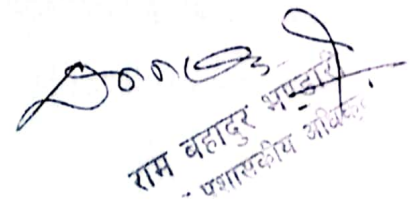 राम बहादुर भण्डारी
प्रशासकीय अधिकृत